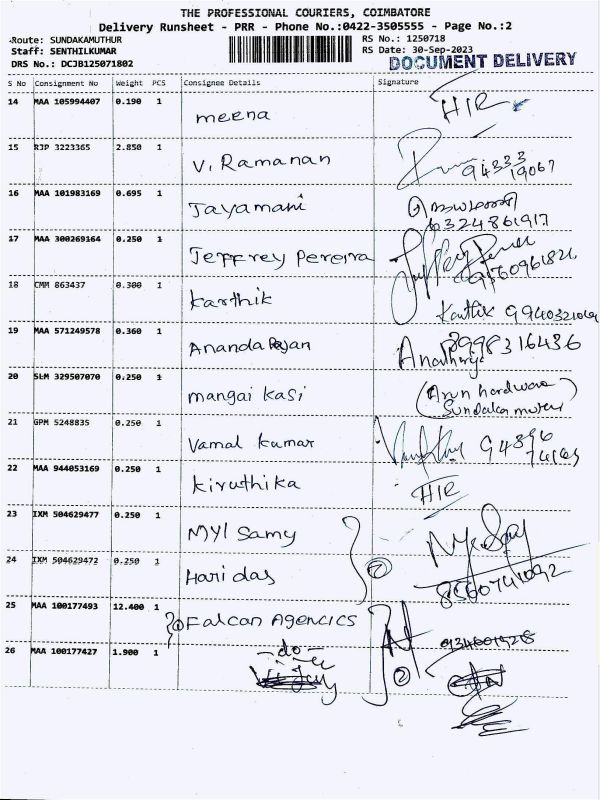 THE PROFESSIONAL COURIERS, COIMBATORE
Delivery Runsheet - PRR - Phone No.:0422-3505555 - Page No.:2
Route: SUNDAKAMUTHUR RS No.: 1250718
Staff: SENTHILKUMAR RS Date: 30-Sep-2023
DRS No.: DCJB125071802 DOCUMENT DELIVERY
S No Consignment No Weight PCS Consignee Details Signature
14 MAA 105994407 0.190 1 meena HIR
15 RJP 3223365 2.850 1 V. Ramanan 94333
19067
16 MAA 101983169 0.695 1 Jayamani
6324861917
17 MAA 300269164 0.250 1 Jeffrey Pereira
18 CMM 863437 0.300 1 Karthik Karthik
19 MAA 571249578 0.360 1 AnandaRajan 8998316486
20 SLM 329507070 0.250 1 mangai kasi (Arun hardware
21 GPM 5248835 0.250 1 Vamal Kumar 94896
22 MAA 944053169 0.250 1 Kiruthika HIR
23 IXM 504629477 0.250 1 Myl Samy
24 IXM 504629472 0.250 1 Hari das 2 8560741092
25 MAA 100177493 12.400 1 Falcan Agencics
26 MAA 100177427 1.900 1 -do- 2